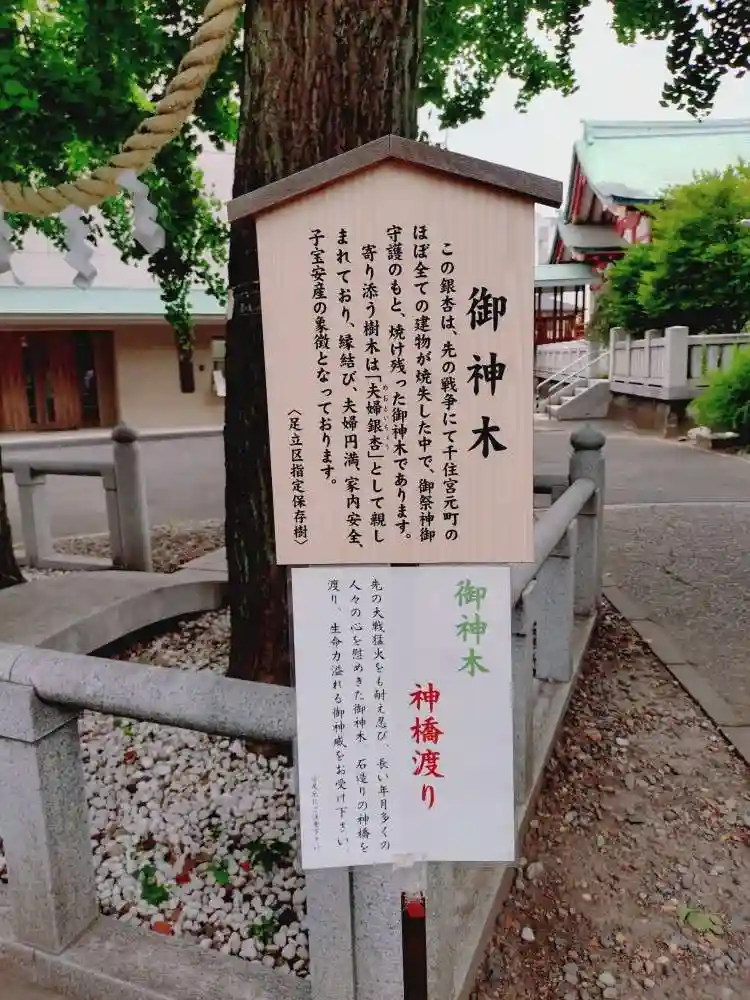 御神木
この銀杏は、先の戦争にて千住宮元町の
ほぼ全ての建物が焼失した中で、御祭神御
守護のもと、焼け残った御神木であります。
寄り添う樹木は「夫婦銀杏」として親し
めおといちょう
まれており、縁結び、夫婦円満、家内安全、
子宝安産の象徴となっております。
〈足立区指定保存樹〉
御神木
神橋渡り
先の大戦猛火をも耐え忍び、長い年月多くの
人々の心を慰めきた御神木 石造りの神橋を
渡り、生命力溢れる御神威をお受け下さい